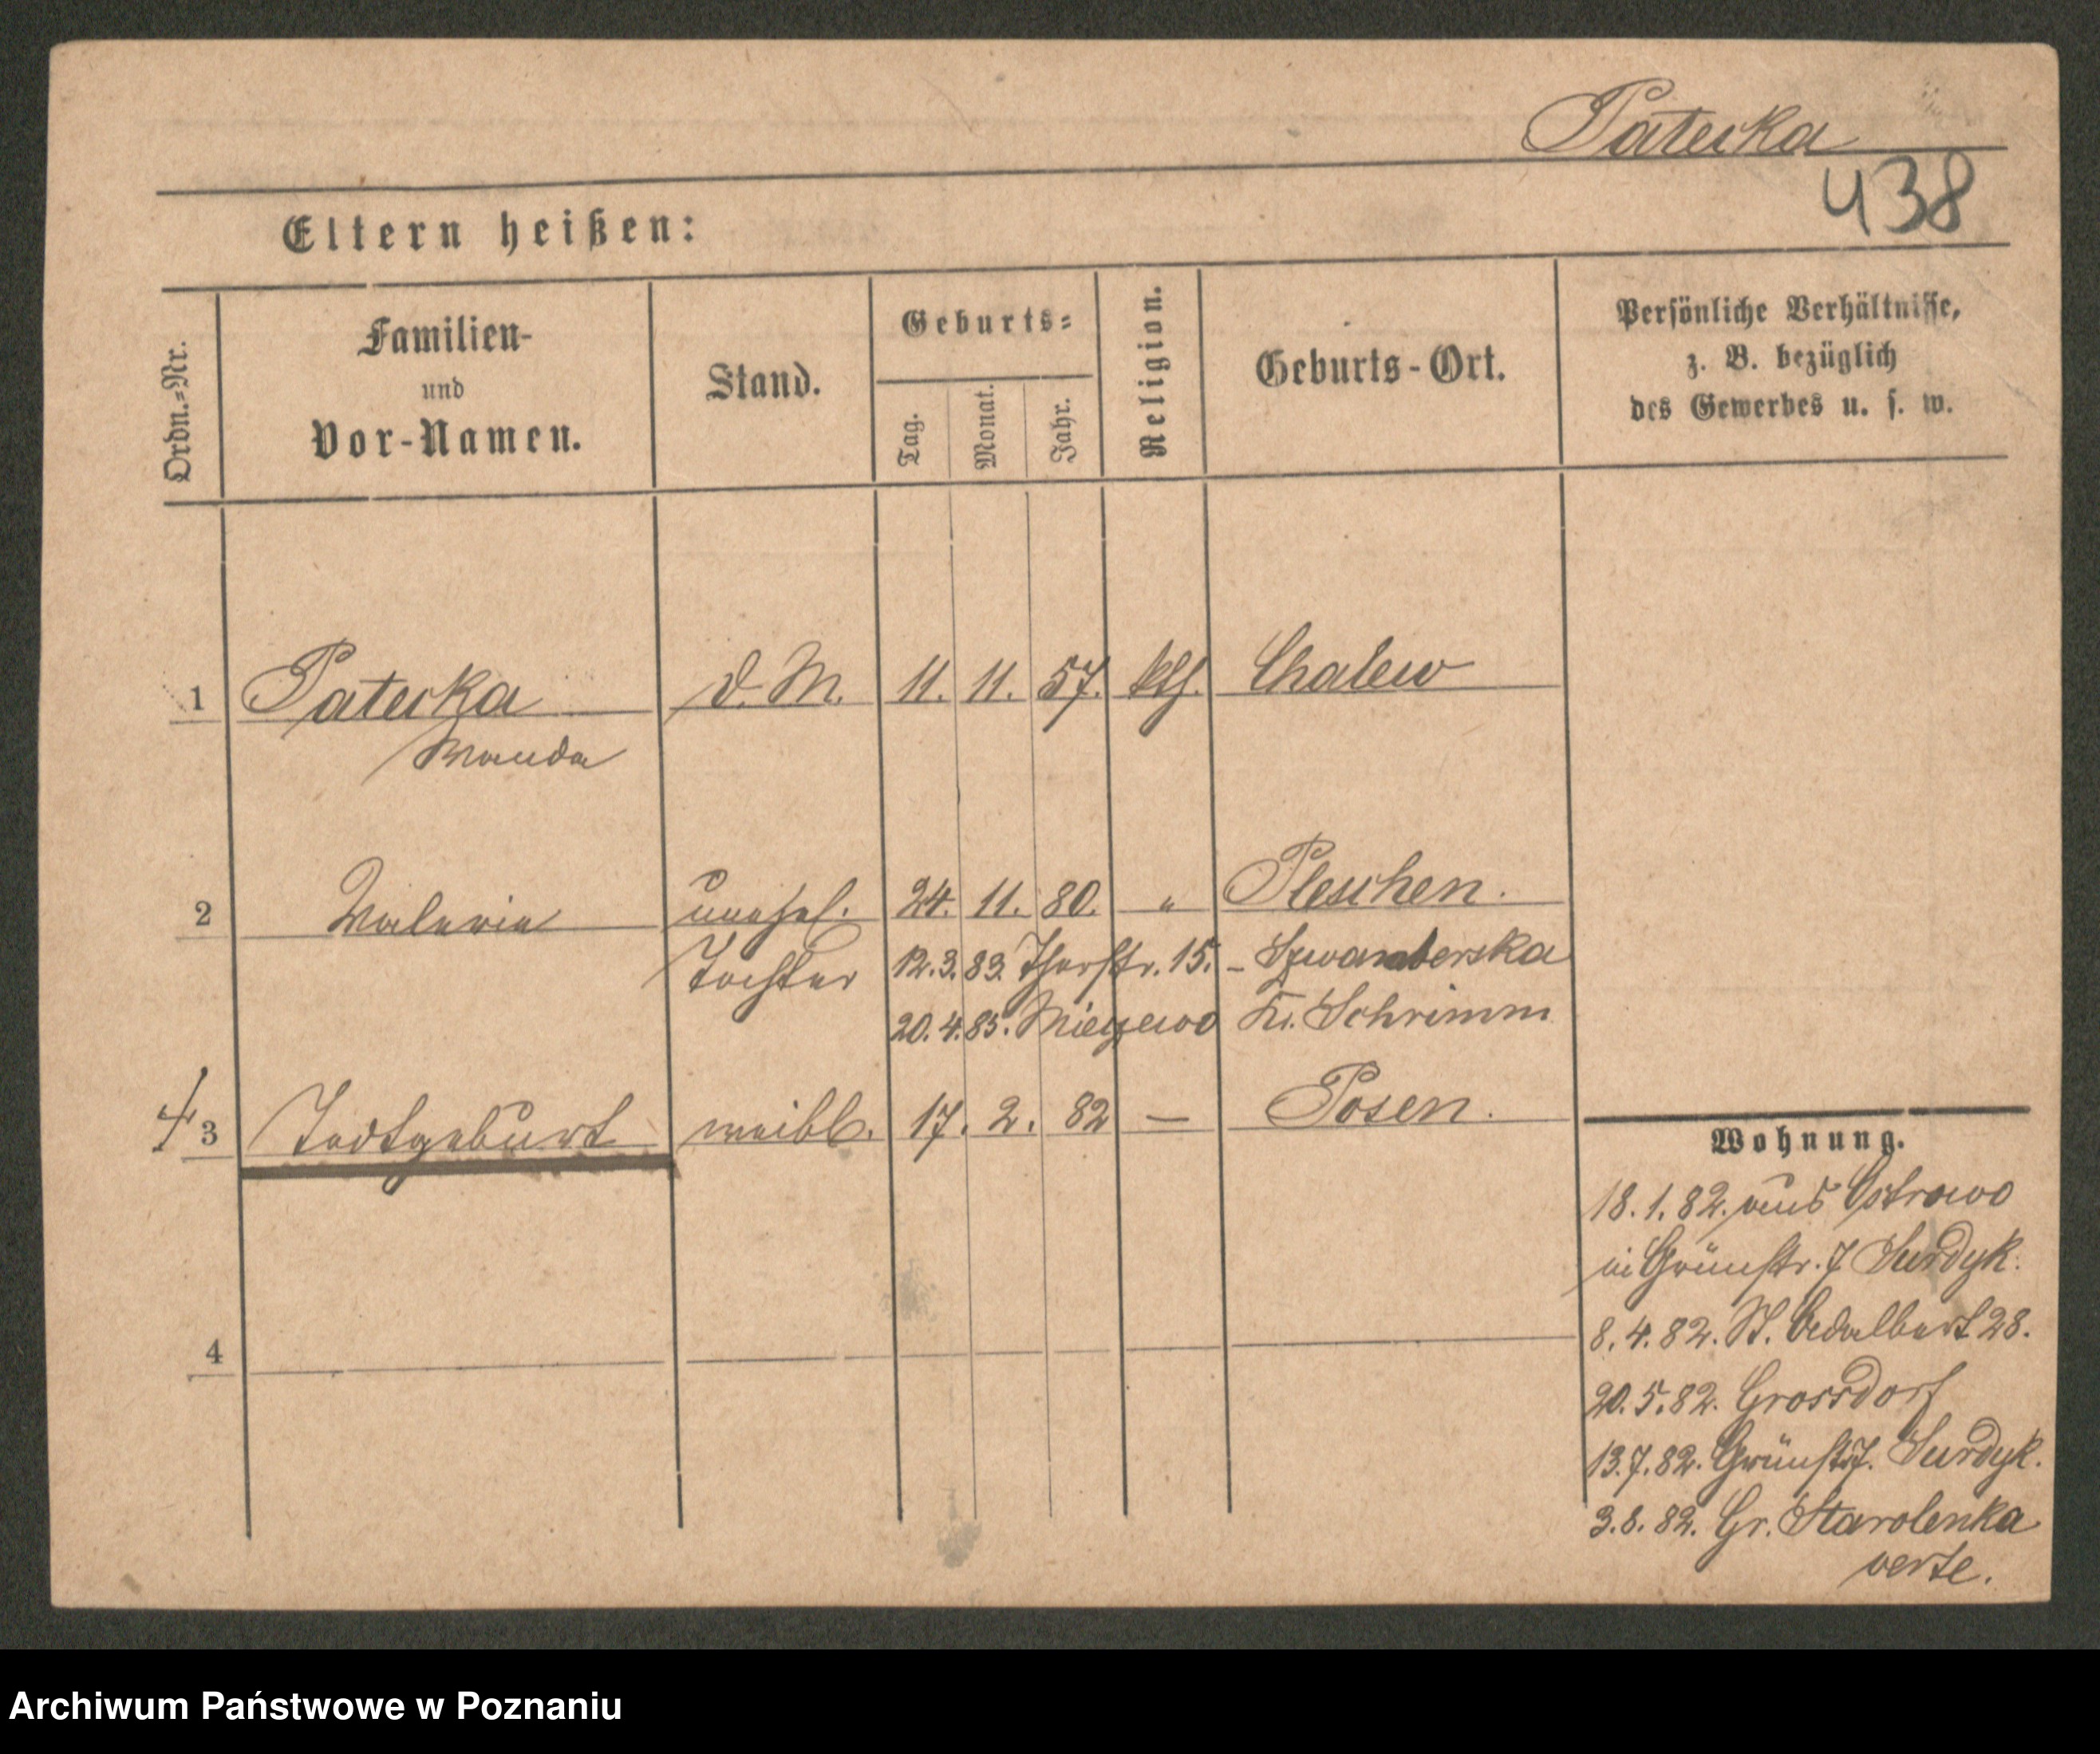 Patecka
438
Eltern heißen:
Ordn.-Nr.
Familien-
und
Vor-Namen.
Stand.
Geburts-
Tag.
Monat.
Jahr.
Religion.
Geburts-Ort.
Persönliche Verhältnisse,
z. B. bezüglich
des Gewerbes u. s. w.
1 Patecka d. M. 11. 11. 57. kth. Chalew
Wanda
2 Valeria unehel. 24. 11. 80. " Pleschen.
Tochter 12.3.83. Thorstr. 15. - Szwamberska
20.4.85. Kr. Schrimm
3 Todtgeburt weibl. 17. 2. 82 — Posen.
4
Wohnung.
18.1.82. aus Ostrowo
in Grünstr. 7 Surdyk.
8.4.82. St. Adalbert 28.
20.5.82. Grossdorf
13.7.82. Grünstr. 7. Surdyk.
3.8.82. Gr. Starolenka
verte.
Archiwum Państwowe w Poznaniu